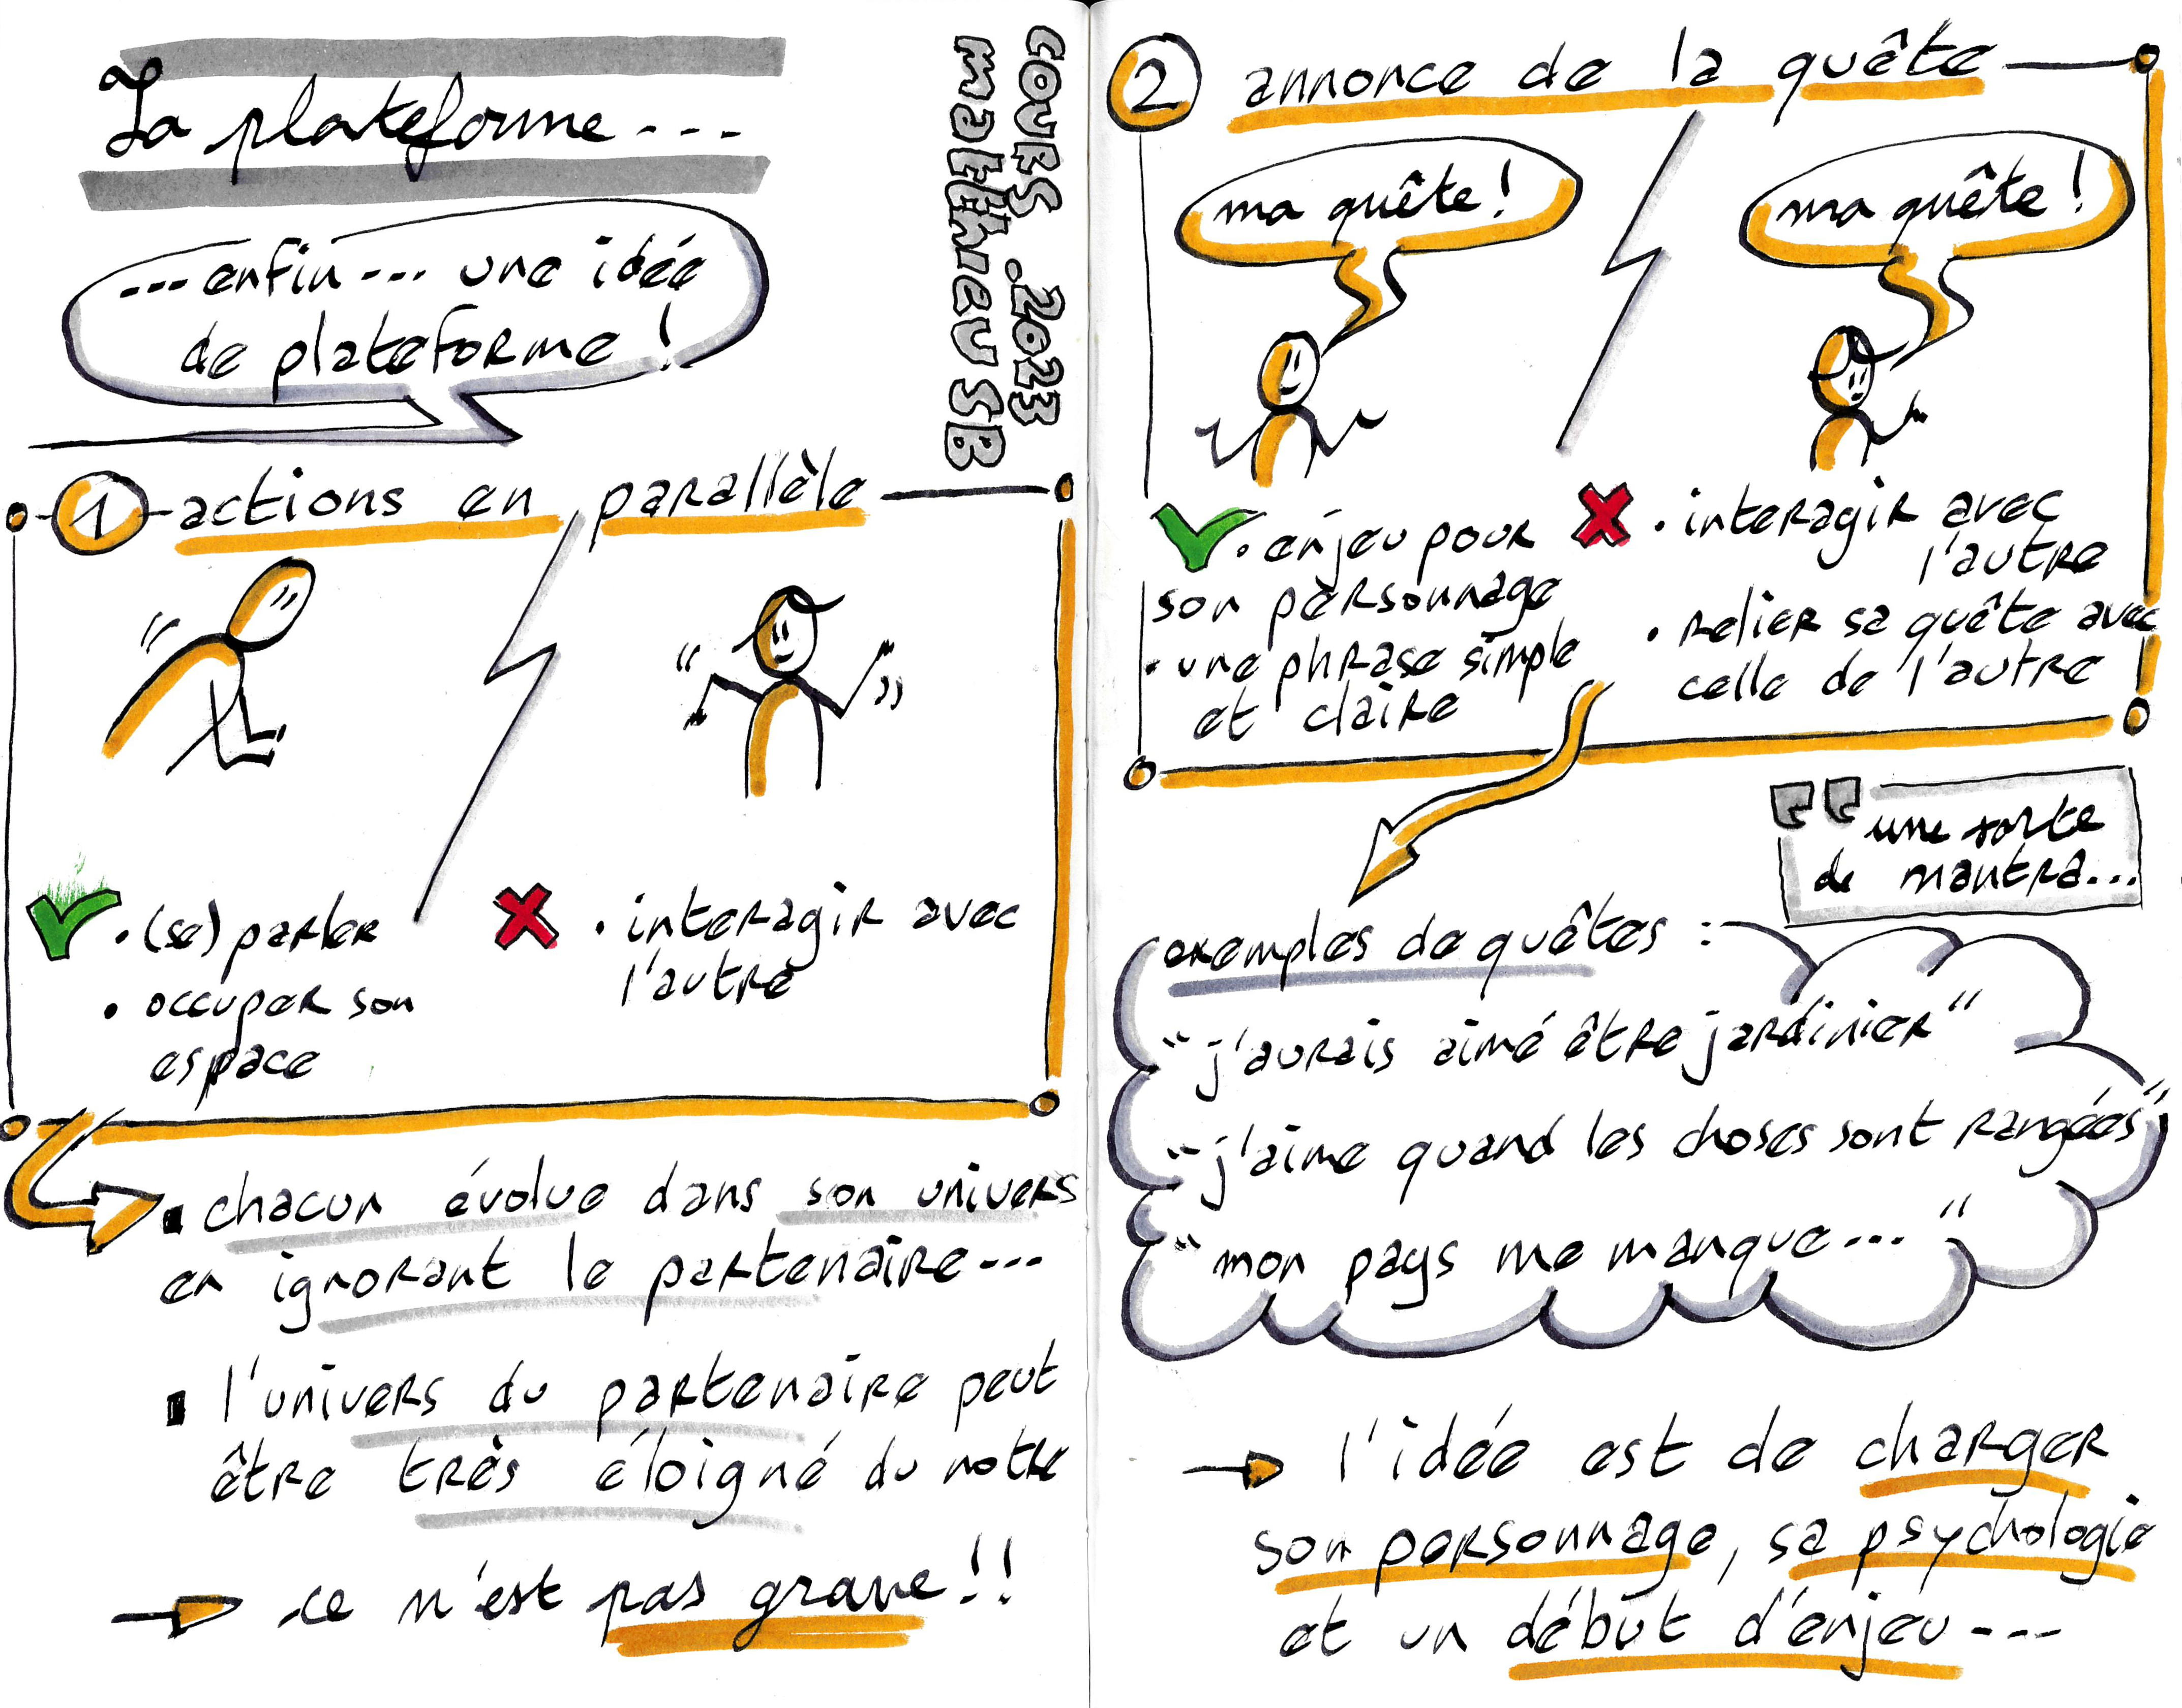 La plateforme...
...enfin... une idée
de plateforme !
cours .2023
matthieu SB
1 actions en parallèle
• (se) parler
• occuper son
espace
• interagir avec
l'autre
▪ chacun évolue dans son univers
en ignorant le partenaire...
▪ l'univers du partenaire peut
être très éloigné du notre
ce n'est pas grave !!
2 annonce de la quête
ma quête !
ma quête !
• enjeu pour
son personnage
• une phrase simple
et claire
• interagir avec
l'autre
• relier sa quête avec
celle de l'autre
“ une sorte
de mantra...
exemples de quêtes :
"j'aurais aimé être jardinier"
"j'aime quand les choses sont rangées"
"mon pays me manque..."
l'idée est de charger
son personnage, sa psychologie
et un début d'enjeu...